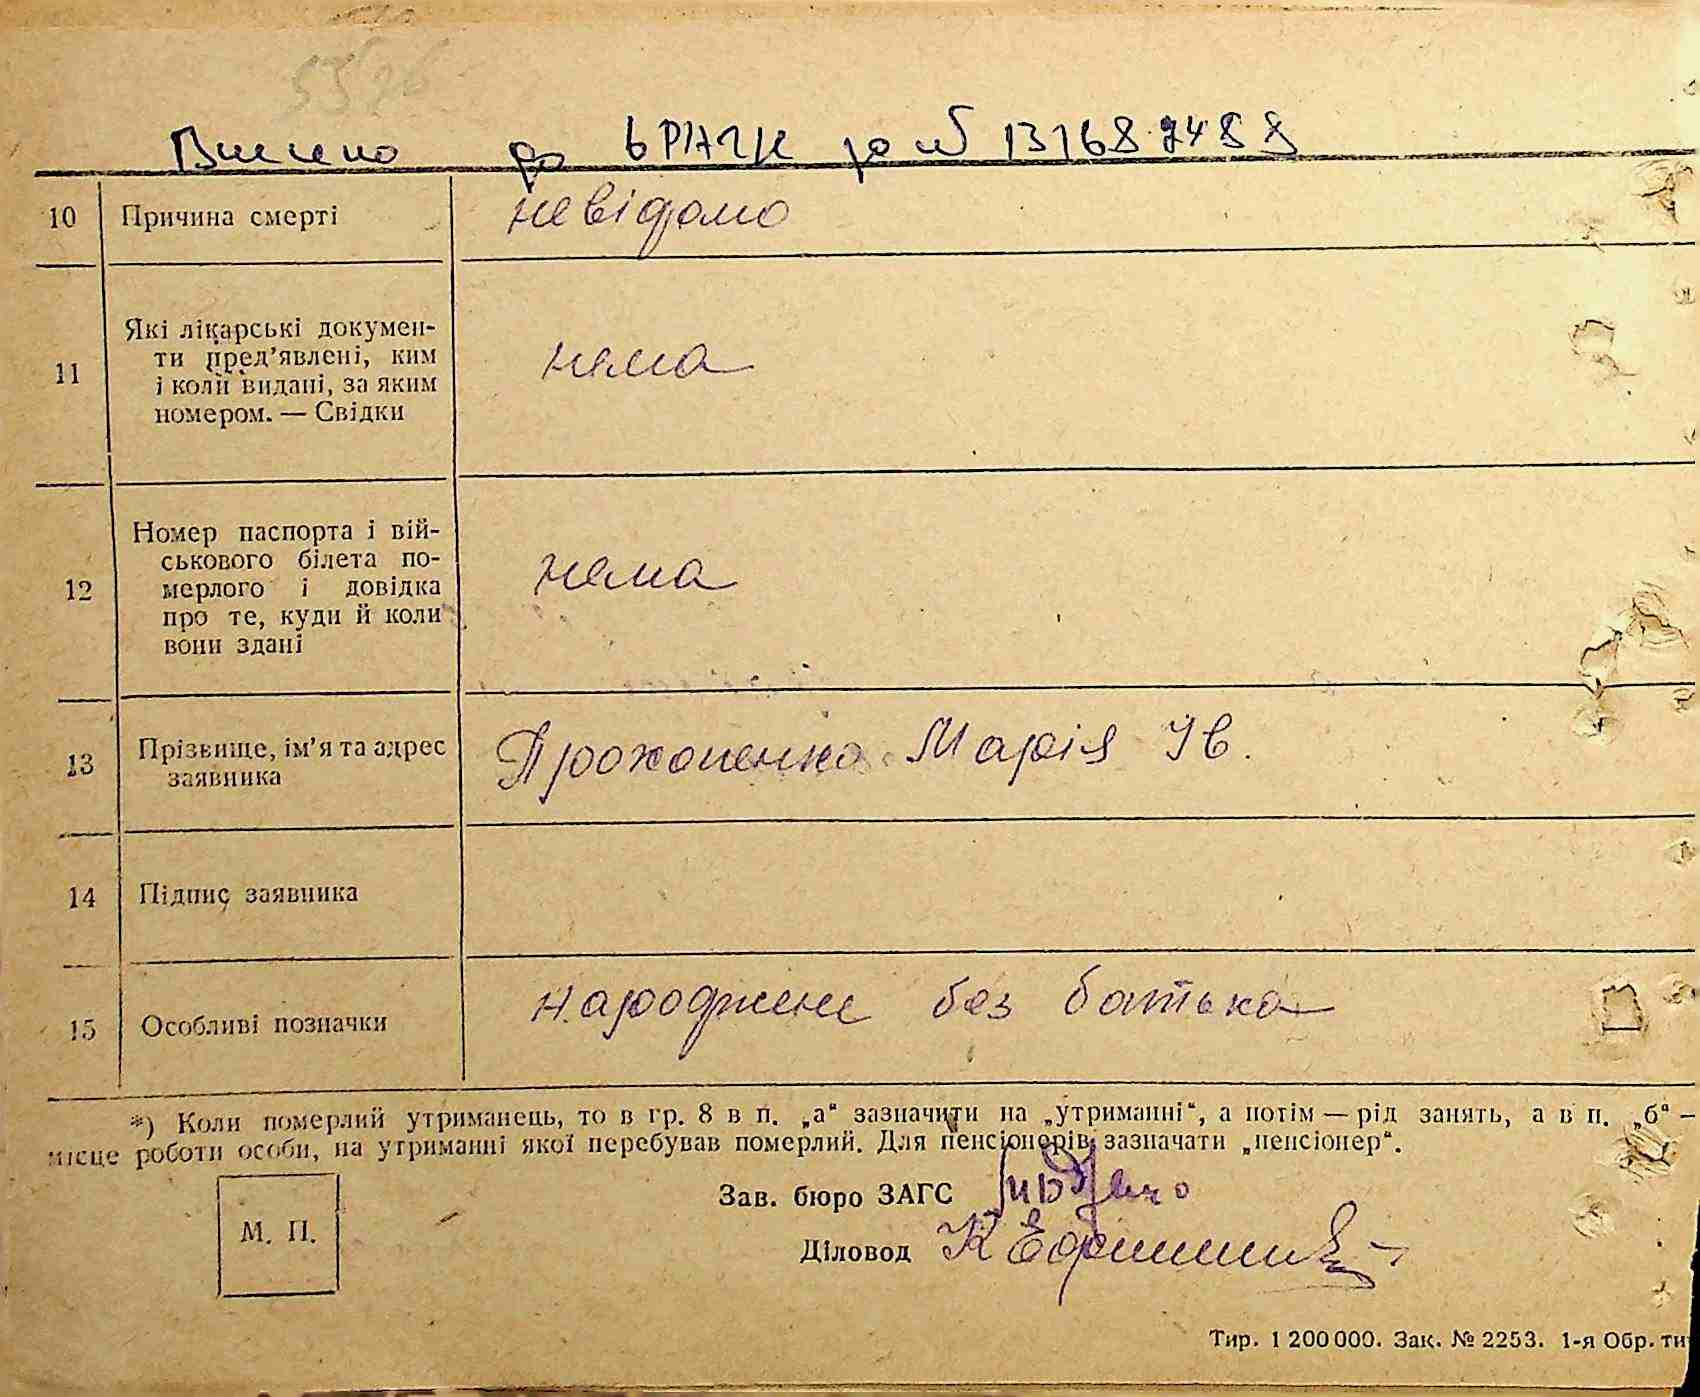 Внесено до ДРАЦС за № 131687488
10 Причина смерті невідомо
11 Які лікарські докумен-
ти пред'явлені, ким
і коли видані, за яким
номером. — Свідки
нема
12 Номер паспорта і вій-
ськового білета по-
мерлого і довідка
про те, куди й коли
вони здані
нема
13 Прізвище, ім'я та адрес
заявника
Прохоненко Марія Ів.
14 Підпис заявника
15 Особливі позначки народжене без батька
*) Коли померлий утриманець, то в гр. 8 в п. „а“ зазначити на „утриманні“, а потім — рід занять, а в п. „б“ —
місце роботи особи, на утриманні якої перебував померлий. Для пенсіонерів зазначати „пенсіонер“.
Зав. бюро ЗАГС
М. П.
Діловод
Тир. 1 200 000. Зак. № 2253. 1-я Обр. ти